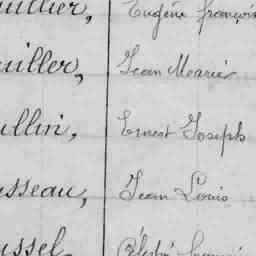 uillier, Eugène françois
uiller, Jean Marie
ullin, Ernest Joseph
usseau, Jean Louis
ussel